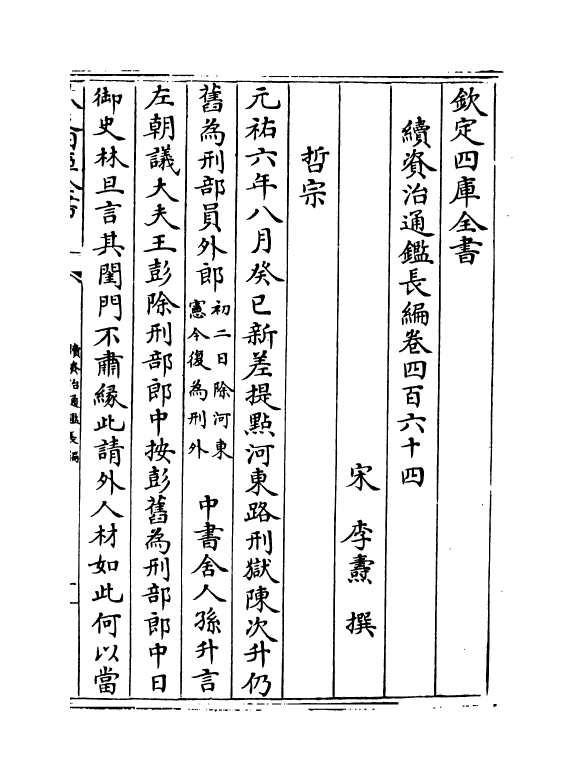 欽定四庫全書
續資治通鑑長編卷四百六十四
宋 李燾 撰
哲宗
元祐六年八月癸已新差提點河東路刑獄陳次升仍
舊為刑部員外郎初二日除河東憲今復為刑外 中書舍人孫升言
左朝議大夫王彭除刑部郎中按彭舊為刑部郎中日
御史林旦言其閨門不肅緣此請外人材如此何以當
續資治通鑑長編